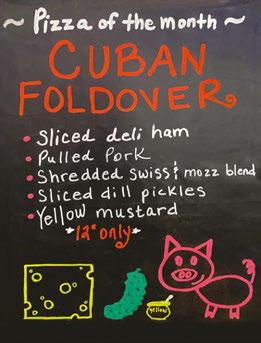 ~ Pizza of the month ~
CUBAN
FOLDOVER
• Sliced deli ham
• Pulled Pork
• Shredded Swiss & mozz blend
• Sliced dill pickles
• Yellow mustard
*12" only*
yellow